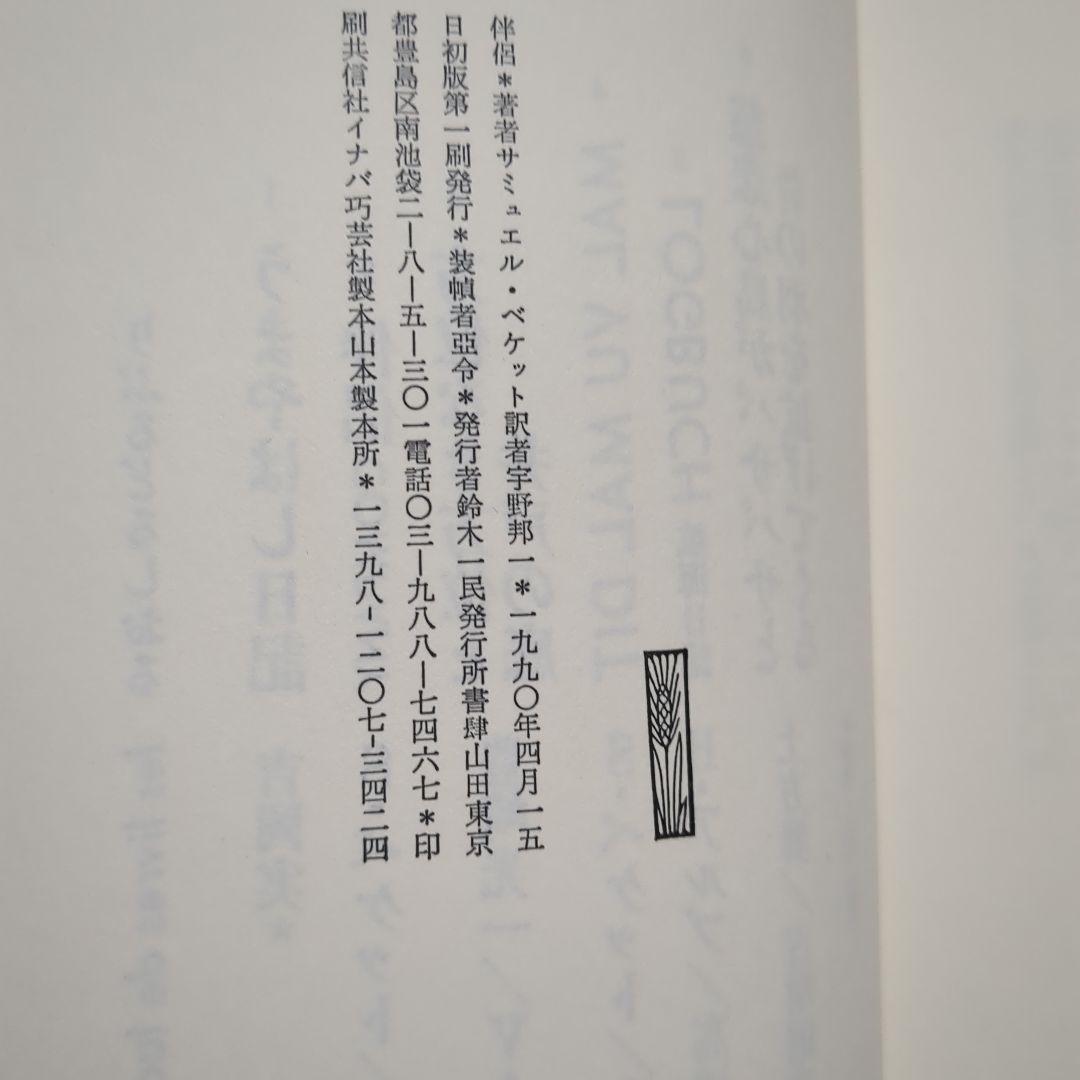 伴侶*著者サミュエル・ベケット訳者宇野邦一*一九九〇年四月一五
日初版第一刷発行*装幀者亞令*発行者鈴木一民発行所書肆山田東京
都豊島区南池袋二―八―五―三〇一電話〇三―九八八―七四六七*印
刷共信社イナバ巧芸社製本山本製本所*一三九八-一二〇七-三四二四